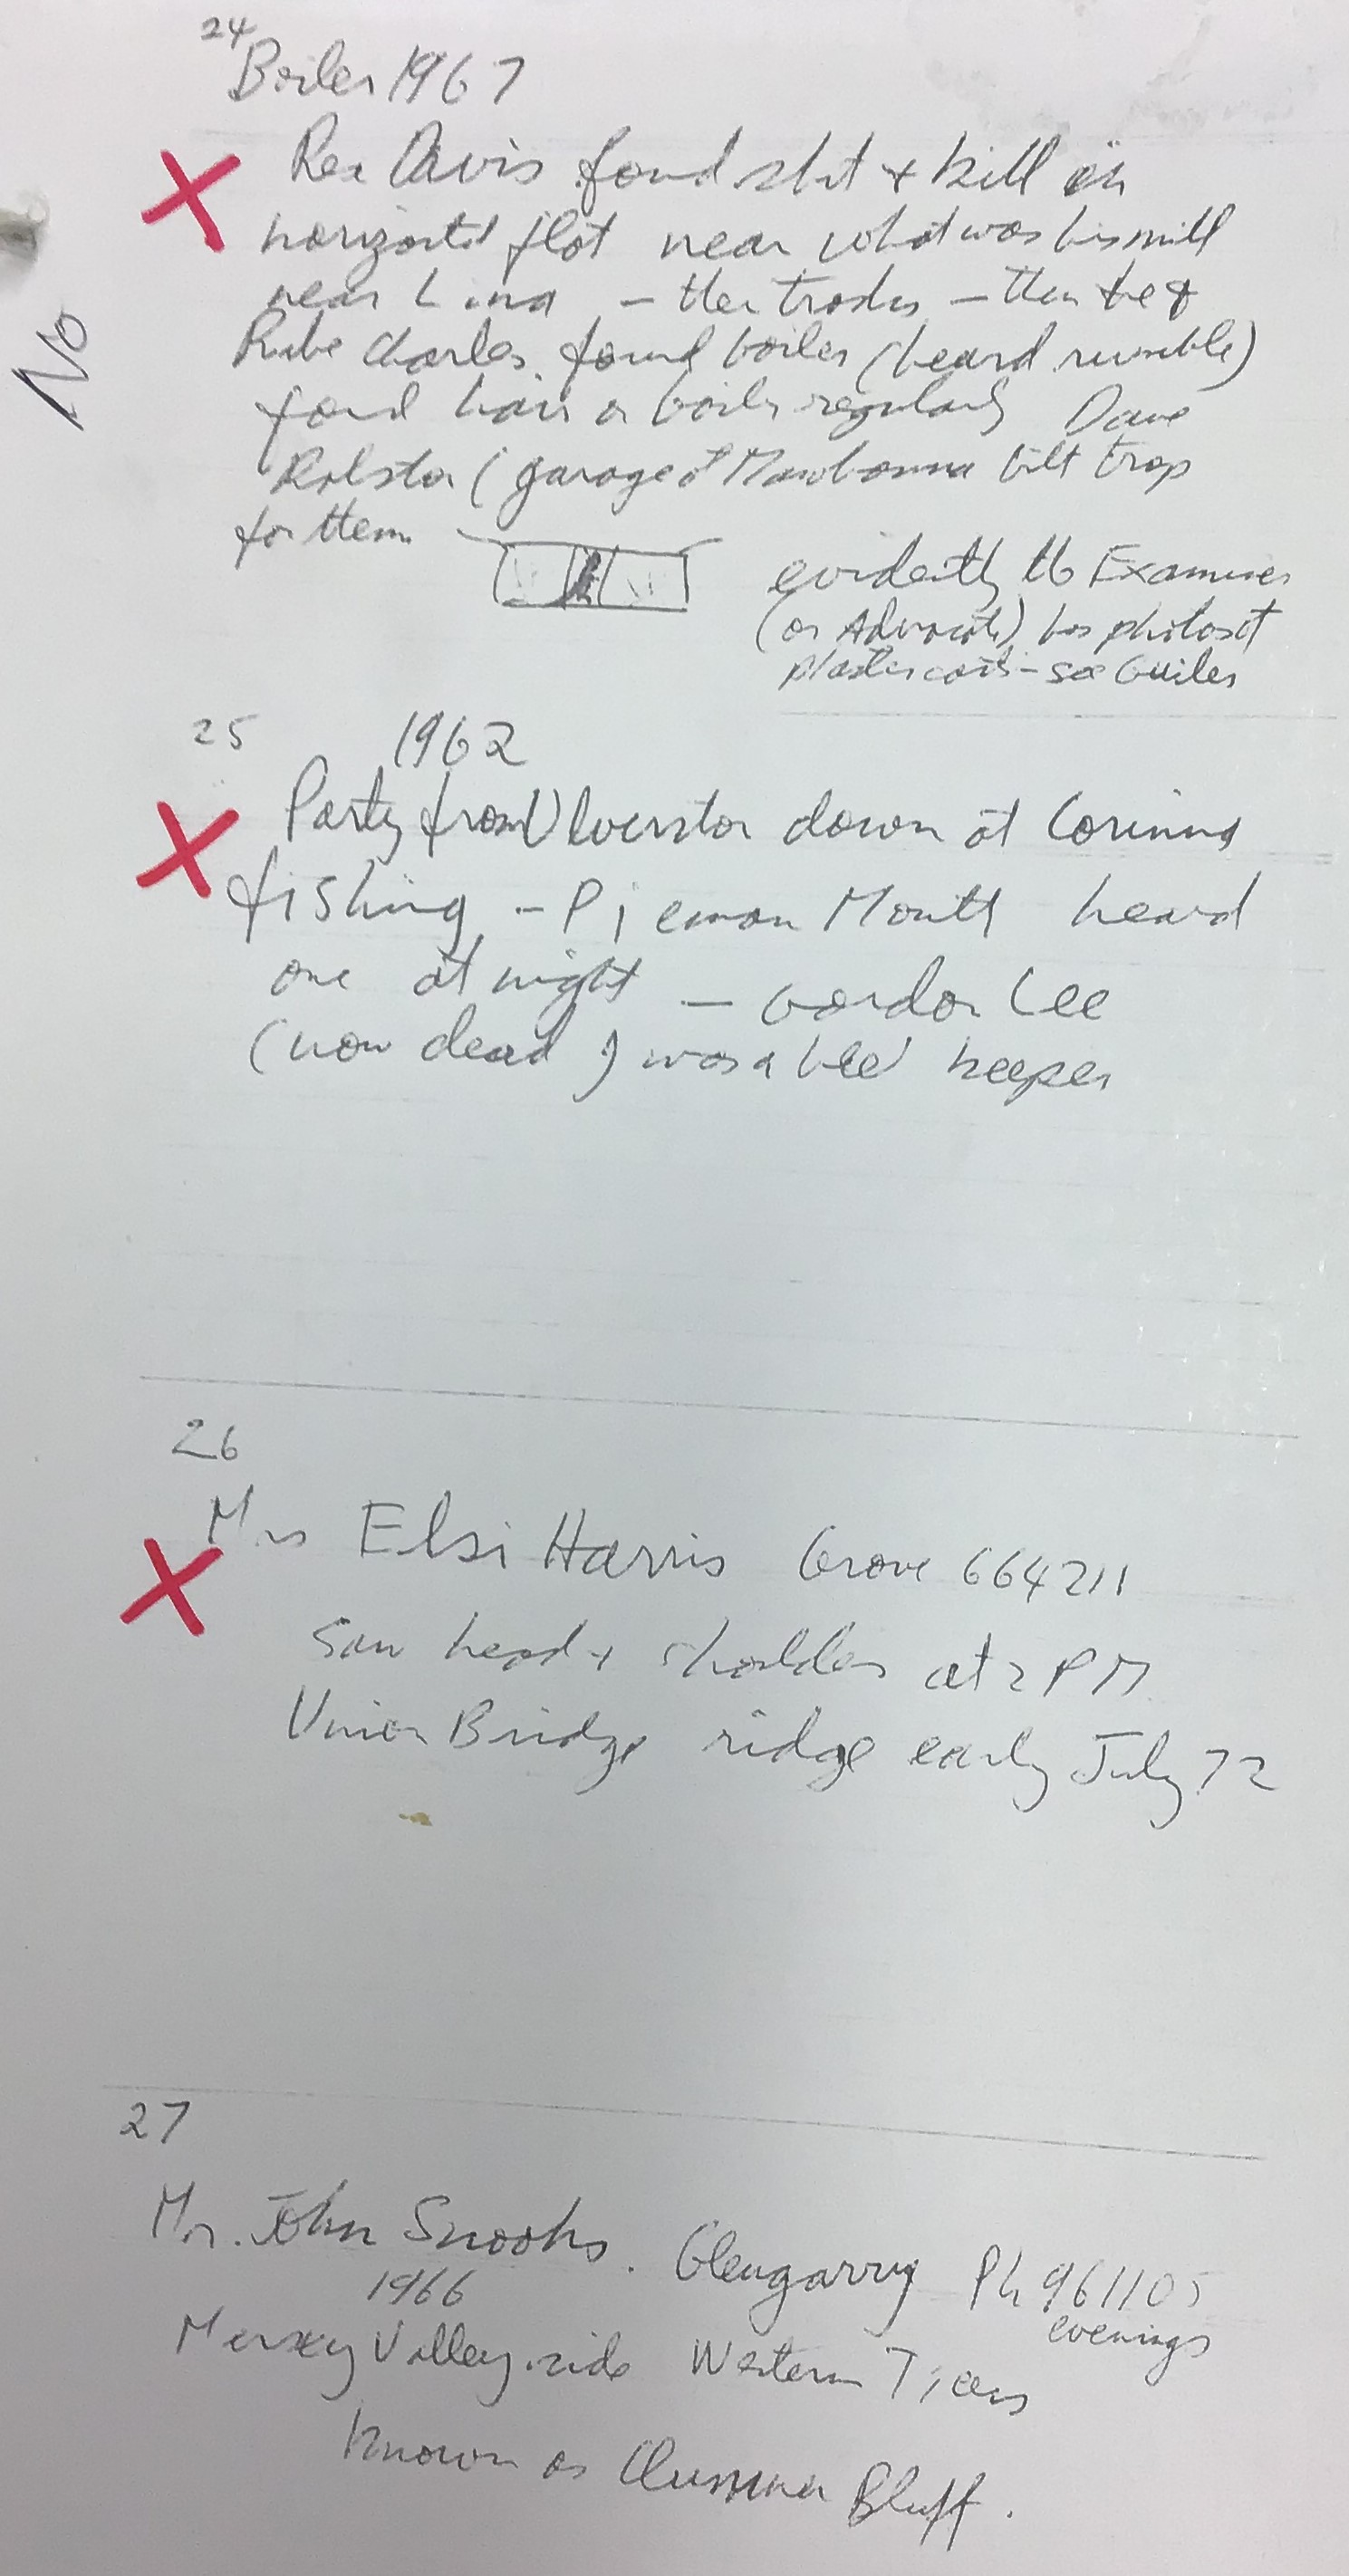 24
Boiler 1967
Rex Davis found shit + kill in
horizontal flat near what was his mill
near Luina - then tracks - then he &
Rube Charles found boiler (heard rumble)
found hair on boiler regularly Dave
Rolston (garage at Mawbanna built trap
for them.
evidently the Examiner
(or Advocate) has photos of
plaster casts - see Guiler
No
25 1962
Party from Ulverston down at Corinna
fishing - Pieman Mouth heard
one at night - Gordon Lee
(now dead) was a bee keeper
26
Mrs Elsi Harris Grove 664211
Saw head + shoulders at 2 PM
Union Bridge ridge early July 72
27
Mr. John Snooks. Glengarry Ph 961105
1966 evenings
Mersey Valley side Western Tiers
Known as Clumner Bluff.